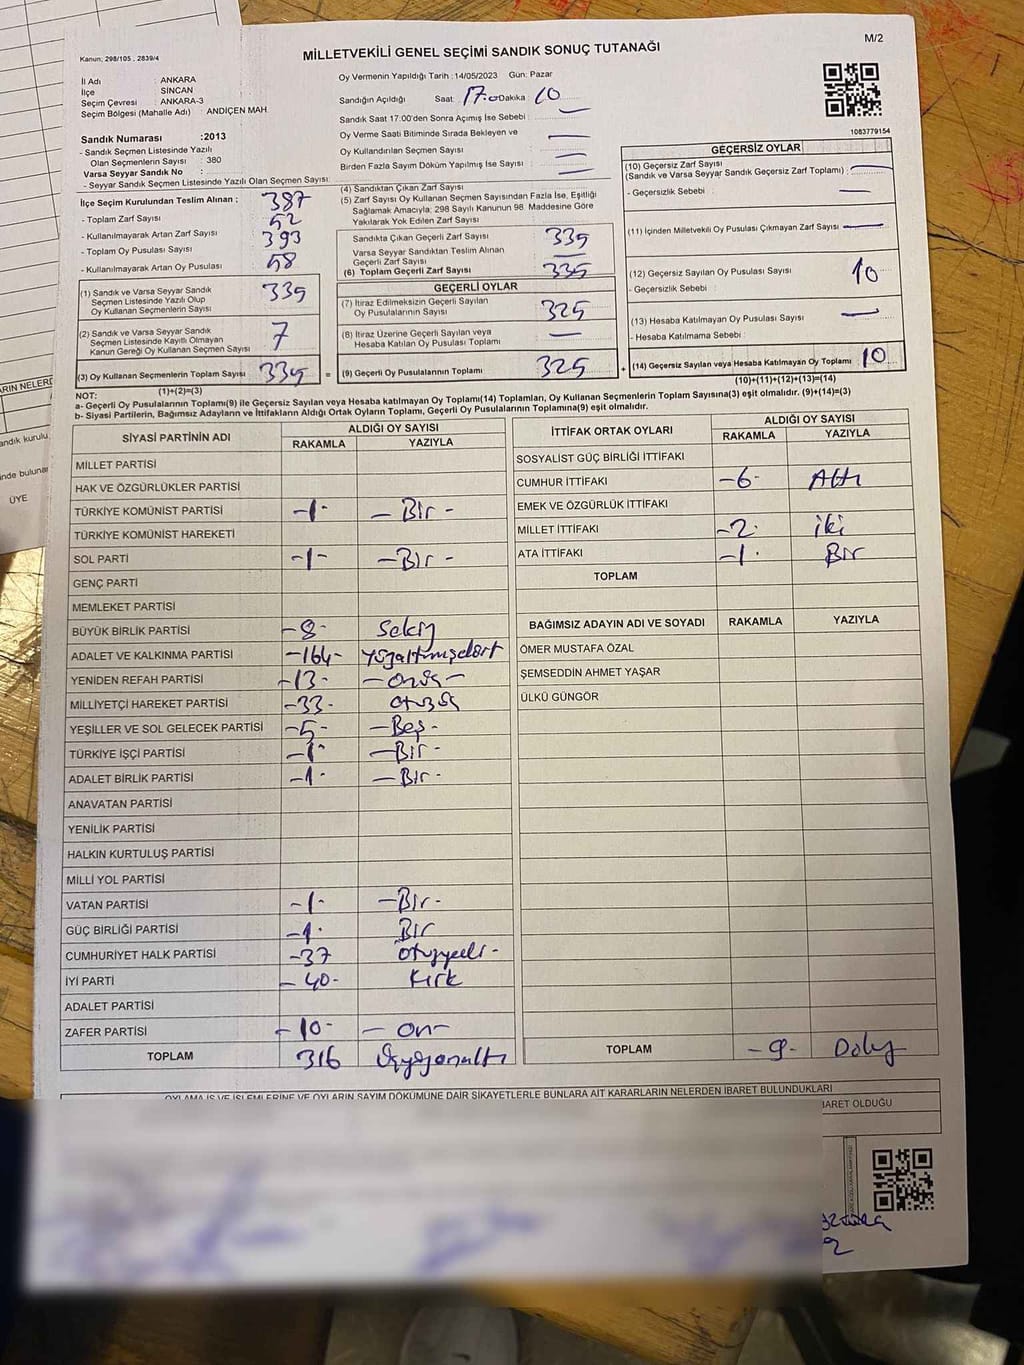 M/2
Kanun: 298/105 , 2839/4
MİLLETVEKİLİ GENEL SEÇİMİ SANDIK SONUÇ TUTANAĞI
İl Adı : ANKARA
İlçe : SİNCAN
Seçim Çevresi : ANKARA-3
Seçim Bölgesi (Mahalle Adı) : ANDİÇEN MAH.
Sandık Numarası :2013
- Sandık Seçmen Listesinde Yazılı
Olan Seçmenlerin Sayısı : 380
Varsa Seyyar Sandık No :
- Seyyar Sandık Seçmen Listesinde Yazılı Olan Seçmen Sayısı:
Oy Vermenin Yapıldığı Tarih : 14/05/2023 Gün: Pazar
Sandığın Açıldığı Saat : 17:0 Dakika : 10
Sandık Saat 17:00'den Sonra Açımış İse Sebebi : —
Oy Verme Saati Bitiminde Sırada Bekleyen ve
Oy Kullandırılan Seçmen Sayısı : —
Birden Fazla Sayım Döküm Yapılmış İse Sayısı : —
1083779154
İlçe Seçim Kurulundan Teslim Alınan :
- Toplam Zarf Sayısı 387
- Kullanılmayarak Artan Zarf Sayısı 52
- Toplam Oy Pusulası Sayısı 393
- Kullanılmayarak Artan Oy Pusulası 58
(1) Sandık ve Varsa Seyyar Sandık
Seçmen Listesinde Yazılı Olup
Oy Kullanan Seçmenlerin Sayısı 335
(2) Sandık ve Varsa Seyyar Sandık
Seçmen Listesinde Kayıtlı Olmayan
Kanun Gereği Oy Kullanan Seçmen Sayısı 7
(3) Oy Kullanan Seçmenlerin Toplam Sayısı 335 =
(1)+(2)=(3)
(4) Sandıktan Çıkan Zarf Sayısı
(5) Zarf Sayısı Oy Kullanan Seçmen Sayısından Fazla İse, Eşitliği
Sağlamak Amacıyla; 298 Sayılı Kanunun 98. Maddesine Göre
Yakılarak Yok Edilen Zarf Sayısı
Sandıkta Çıkan Geçerli Zarf Sayısı 335
Varsa Seyyar Sandıktan Teslim Alınan
Geçerli Zarf Sayısı —
(6) Toplam Geçerli Zarf Sayısı 335
GEÇERLİ OYLAR
(7) İtiraz Edilmeksizin Geçerli Sayılan
Oy Pusulalarının Sayısı 325
(8) İtiraz Üzerine Geçerli Sayılan veya
Hesaba Katılan Oy Pusulası Toplamı —
(9) Geçerli Oy Pusulalarının Toplamı 325 +
GEÇERSİZ OYLAR
(10) Geçersiz Zarf Sayısı
(Sandık ve Varsa Seyyar Sandık Geçersiz Zarf Toplamı) : —
- Geçersizlik Sebebi : —
(11) İçinden Milletvekili Oy Pusulası Çıkmayan Zarf Sayısı —
(12) Geçersiz Sayılan Oy Pusulası Sayısı 10
- Geçersizlik Sebebi :
(13) Hesaba Katılmayan Oy Pusulası Sayısı —
- Hesaba Katılmama Sebebi :
(14) Geçersiz Sayılan veya Hesaba Katılmayan Oy Toplamı 10
(10)+(11)+(12)+(13)=(14)
NOT:
a- Geçerli Oy Pusulalarının Toplamı(9) ile Geçersiz Sayılan veya Hesaba katılmayan Oy Toplamı(14) Toplamları, Oy Kullanan Seçmenlerin Toplam Sayısına(3) eşit olmalıdır. (9)+(14)=(3)
b- Siyasi Partilerin, Bağımsız Adayların ve İttifakların Aldığı Ortak Oyların Toplamı, Geçerli Oy Pusulalarının Toplamına(9) eşit olmalıdır.
SİYASİ PARTİNİN ADI ALDIĞI OY SAYISI
RAKAMLA YAZIYLA
MİLLET PARTİSİ
HAK VE ÖZGÜRLÜKLER PARTİSİ
TÜRKİYE KOMÜNİST PARTİSİ -1- - Bir -
TÜRKİYE KOMÜNİST HAREKETİ
SOL PARTİ -1- - Bir -
GENÇ PARTİ
MEMLEKET PARTİSİ
BÜYÜK BİRLİK PARTİSİ -8- Sekiz
ADALET VE KALKINMA PARTİSİ -164- yüzaltmışdört
YENİDEN REFAH PARTİSİ -13- - onüç -
MİLLİYETÇİ HAREKET PARTİSİ -33- otuzüç
YEŞİLLER VE SOL GELECEK PARTİSİ -5- - Beş -
TÜRKİYE İŞÇİ PARTİSİ -1- - Bir -
ADALET BİRLİK PARTİSİ -1- - Bir -
ANAVATAN PARTİSİ
YENİLİK PARTİSİ
HALKIN KURTULUŞ PARTİSİ
MİLLİ YOL PARTİSİ
VATAN PARTİSİ -1- - Bir -
GÜÇ BİRLİĞİ PARTİSİ -1- Bir
CUMHURİYET HALK PARTİSİ -37 otuzyedi -
İYİ PARTİ - 40- Kırk
ADALET PARTİSİ
ZAFER PARTİSİ -10- - on -
TOPLAM 316 Üçyüzonaltı
İTTİFAK ORTAK OYLARI ALDIĞI OY SAYISI
RAKAMLA YAZIYLA
SOSYALİST GÜÇ BİRLİĞİ İTTİFAKI
CUMHUR İTTİFAKI -6- Altı
EMEK VE ÖZGÜRLÜK İTTİFAKI
MİLLET İTTİFAKI -2- iki
ATA İTTİFAKI -1- Bir
TOPLAM
BAĞIMSIZ ADAYIN ADI VE SOYADI RAKAMLA YAZIYLA
ÖMER MUSTAFA ÖZAL
ŞEMSEDDİN AHMET YAŞAR
ÜLKÜ GÜNGÖR
TOPLAM -9- Dokuz
OYLAMA İŞ VE İŞLEMLERİNE VE OYLARIN SAYIM DÖKÜMÜNE DAİR ŞİKAYETLERLE BUNLARA AİT KARARLARIN NELERDEN İBARET BULUNDUKLARI
BARET OLDUĞU
ARIN NELERD
andık kurulu
inde bulunan
ÜYE